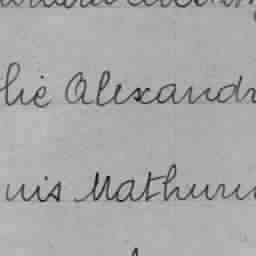 lie Alexandr
uis Mathurin